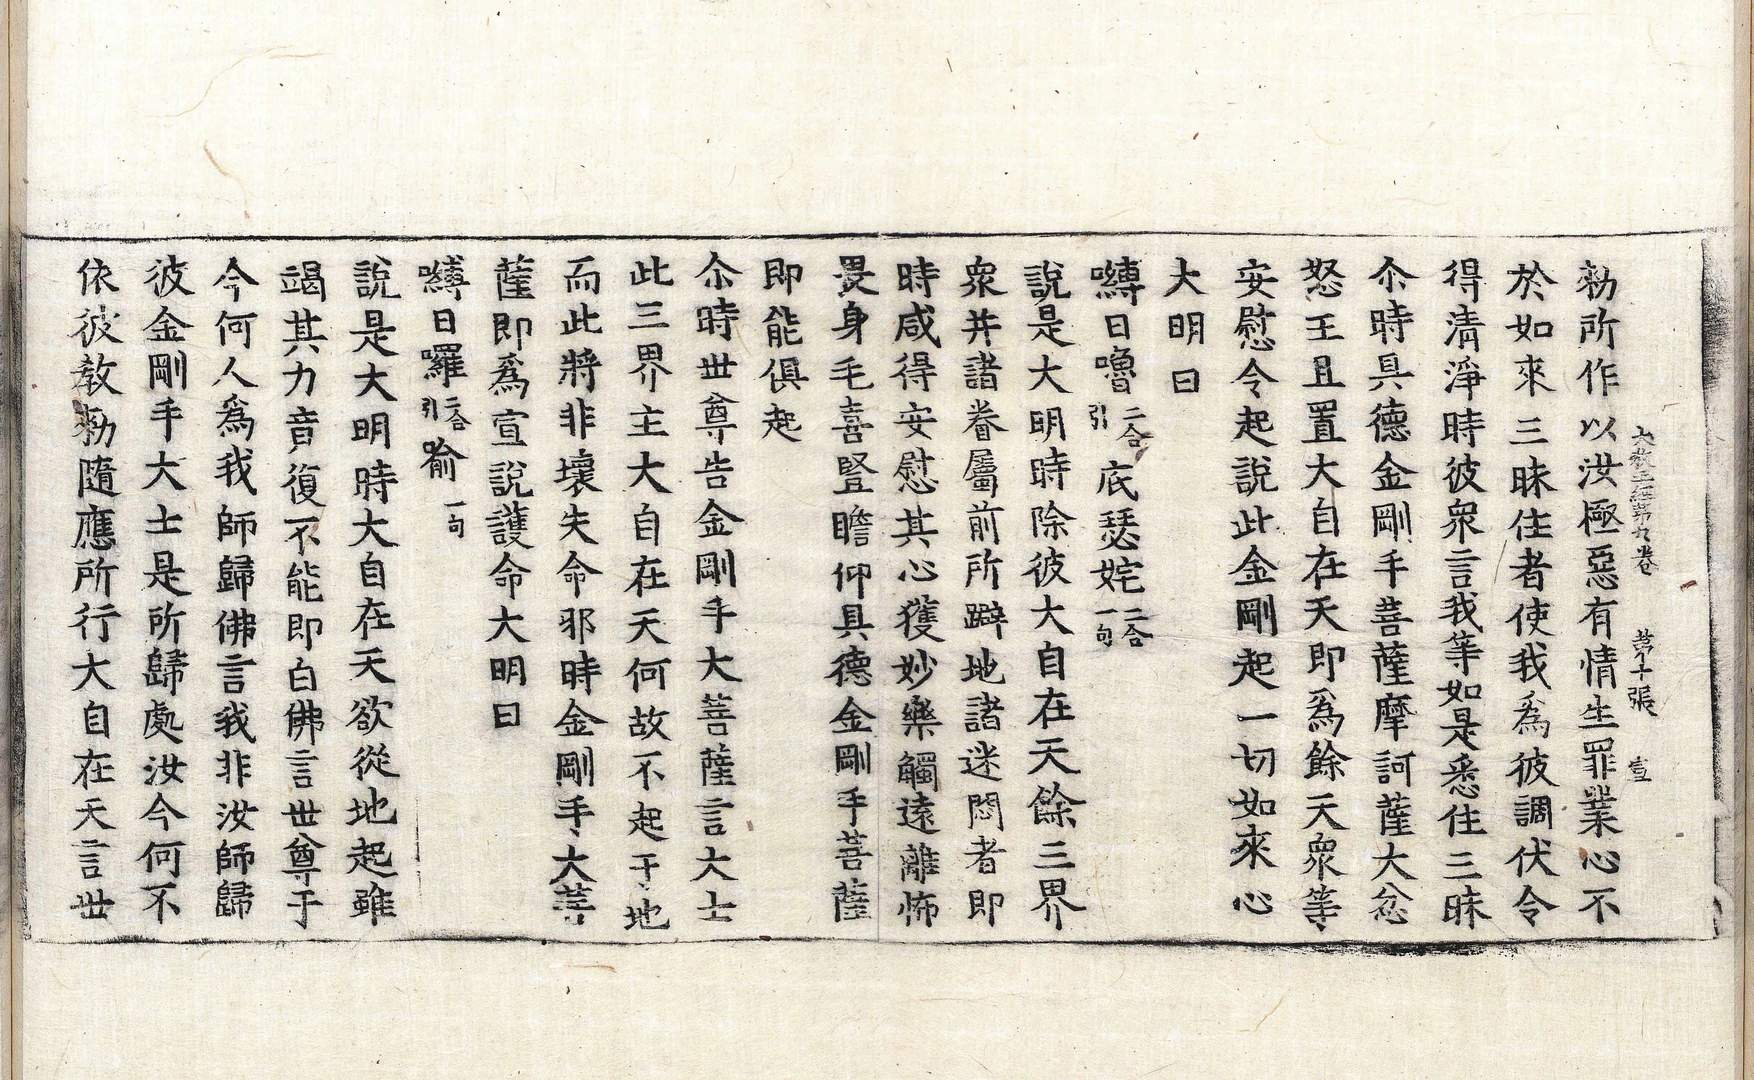 大教王經第九卷　第十張　壹
勑所作以汝極惡有情生罪業心不
於如來三昧住者使我爲彼調伏令
得清淨時彼衆言我等如是悉住三昧
尒時具德金剛手菩薩摩訶薩大忿
怒王且置大自在天即爲餘天衆等
安慰令起說此金剛起一切如來心
大明曰
嚩日嚕二合引底瑟姹二合一句
說是大明時除彼大自在天餘三界
衆并諸眷屬前所躃地諸迷悶者即
時咸得安慰其心獲妙樂觸遠離怖
畏身毛喜豎瞻仰具德金剛手菩薩
即能俱起
尒時世尊告金剛手大菩薩言大士
此三界主大自在天何故不起于地
而此將非壞失命邪時金剛手大菩
薩即爲宣說護命大明曰
嚩日囉二合引喻一句
說是大明時大自在天欲從地起雖
竭其力音復不能即白佛言世尊于
今何人爲我師歸佛言我非汝師歸
彼金剛手大士是所歸處汝今何不
依彼敎勑隨應所行大自在天言世